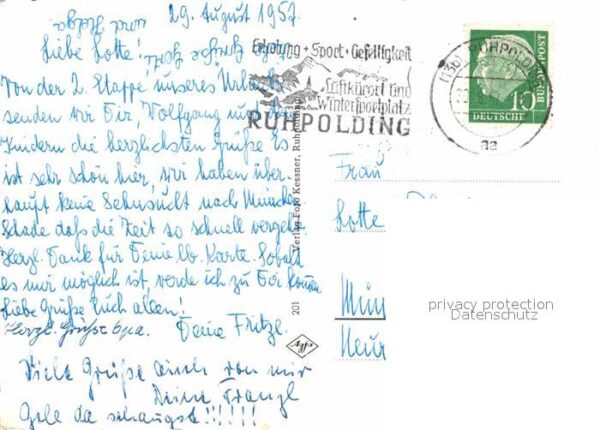 29. August 1957.
und Helga
Liebe Lotte!
Von der 2. Etappe unseres Urlaubs
senden wir Dir, Wolfgang und den
Kindern die herzlichsten Grüße. Es
ist sehr schön hier, wir haben über-
haupt keine Sehnsucht nach München
Schade daß die Zeit so schnell vergeht
Herzl. Dank für Deine lb. Karte. Sobald
es mir möglich ist, werde ich zu Dir kommen
Liebe Grüße Euch allen!
Deine Fritzl.
Herzl. Grüße Opa.
Viele Grüße auch von mir
Deine Franzl
Gele da schaugst!!!!!!
Erholung + Sport + Geselligkeit
Luftkurort und
Wintersportplatz
RUHPOLDING
(13b) RUHPOLDING
aa
10
DEUTSCHE
BUNDESPOST
201 Verlag Foto Kessner, Ruhpolding
Frau
Lotte
Mün
Neur
privacy protection
Datenschutz